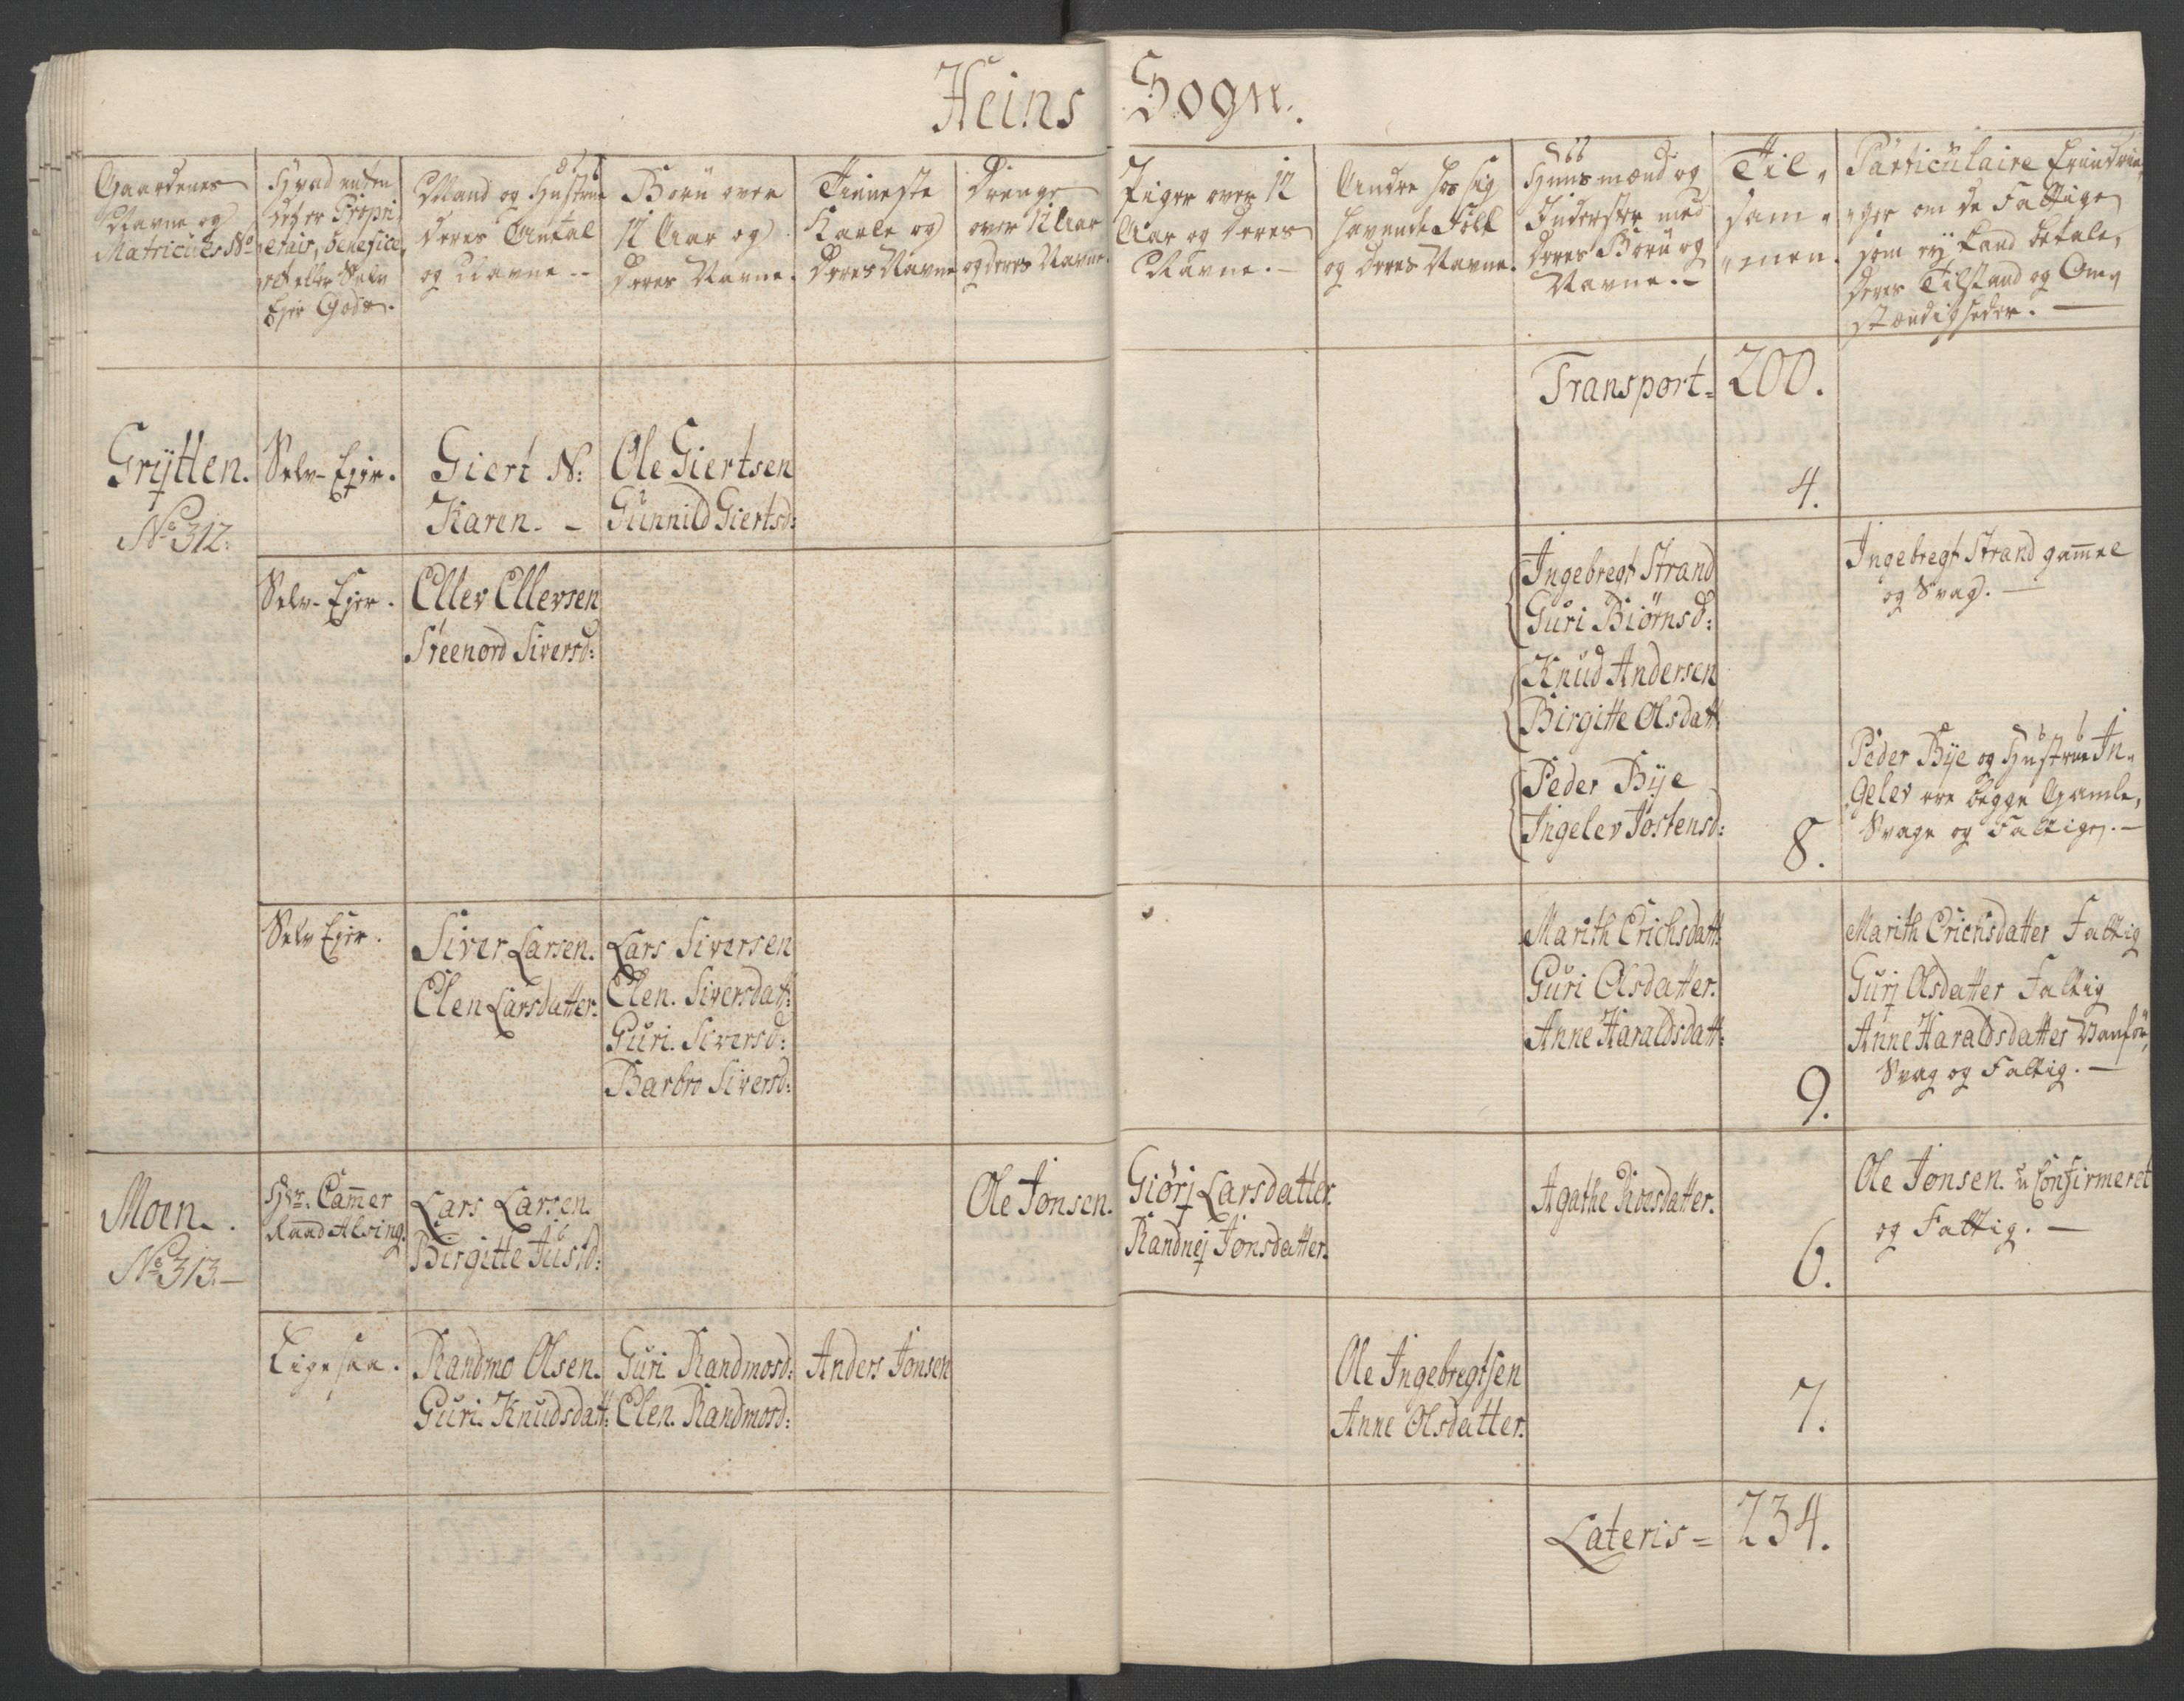 Heins Sogn.
Gaardenes
Navne og
Matriculs No
Hvad enten
det er Propri
etair, benefice
ret eller Selv
Ejer Gods.
Mand og Hustrue
deres Antal
og Navne --
Børn over
12 Aar og
deres Navne.
Tieneste
Karle og
deres Navne
Drenge
over 12 Aar
og deres Navne.
Piger over 12
Aar og deres
Navne. -
Andre hos sig
havende Folk
og deres Navne.
Huusmænd og
Inderster med
deres Børn og
Navne. -
Til,
sam,
men.
Particulaire Erindrin,
ger om de Fattige
som ej kand betale,
deres Tilstand og Om,
stændigheder. -
Transport = 200.
Grÿtten.
No 312.
Selv-Ejer.
Giert N:
Karen. -
Ole Giertsen
Gunnild Giertsd:
4.
Selv-Ejer.
Ellev Ellevsen
Steenord Siversd:
Ingebregt Strand
Guri Biørnsd:
Knud Andersen
Birgitte Olsdatt
Peder Bÿe
Ingelev Jostensd:
8.
Ingebregt Strand gam̅el
og Svag. -
Peder Bÿe og Hustrue In,
gelev ere begge Gamle,
Svage og Fattige. -
Selv Ejer.
Siver Larsen.
Elen Larsdatter.
Lars Siversen
Elen. Siversdatt:
Guri. Siversd:
Barbro Siversd:
Marith Erichsdatt:
Guri Olsdatter.
Anne Haraldsdatt:
9.
Marith Erichsdatter Fattig
Gurj Olsdatter Fattig
Anne Haraldsdatter Vanför,
Svag og Fattig. -
Moen.
No 313. -
Hr. Cam̅er
Raad Alsing.
Lars Larsen.
Birgitte Juusd:
Ole Jonsen.
Giörj Larsdatter.
Randnej Jonsdatter.
Agathe Iversdatter.
6.
Ole Jonsen. u Confirmeret
og Fattig. -
Ligesaa.
Randmo Olsen.
Guri. Knudsdatt:
Guri. Randmosd:
Elen. Randmosd:
Anders Jonsen
Ole Ingebregtsen
Anne Olsdatter.
7.
Lateris = 234.